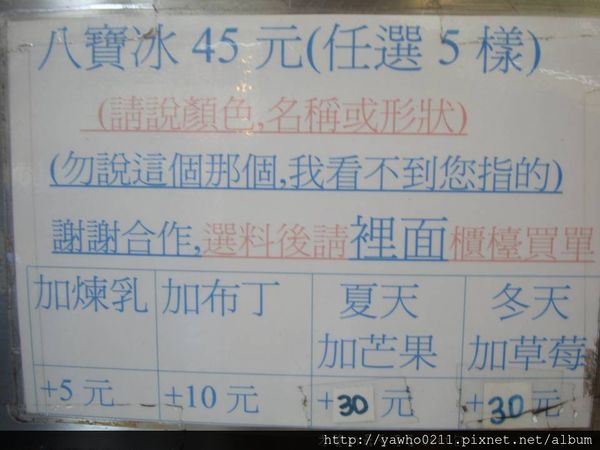 八寶冰 45 元(任選 5 樣)
(請說顏色,名稱或形狀)
(勿說這個那個,我看不到您指的)
謝謝合作,選料後請裡面櫃檯買單
加煉乳 加布丁 夏天 冬天
加芒果 加草莓
+5 元 ±10 元 +30 元 +30 元
http://yawho0211.pixnet.net/album